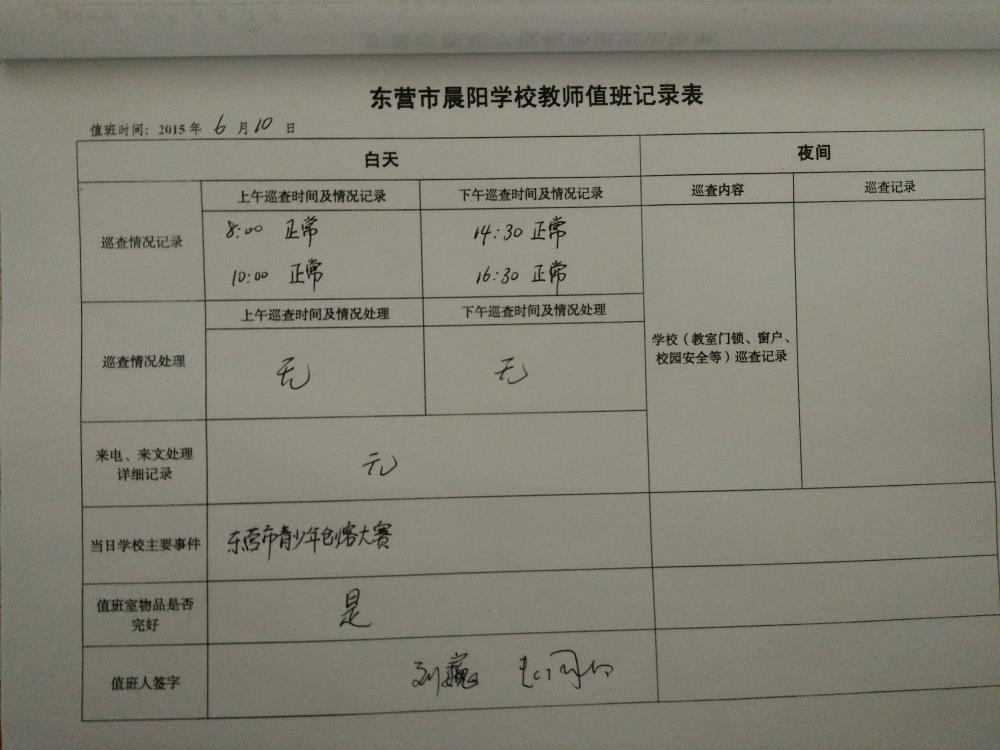 东营市晨阳学校教师值班记录表
值班时间：2015年 6 月 10 日
白天
夜间
上午巡查时间及情况记录
下午巡查时间及情况记录
巡查内容
巡查记录
巡查情况记录
8:00 正常
14:30 正常
10:00 正常
16:30 正常
上午巡查时间及情况处理
下午巡查时间及情况处理
巡查情况处理
无
无
学校（教室门锁、窗户、
校园安全等）巡查记录
来电、来文处理
详细记录
无
当日学校主要事件
东营市青少年创客大赛
值班室物品是否
完好
是
值班人签字
刘巍